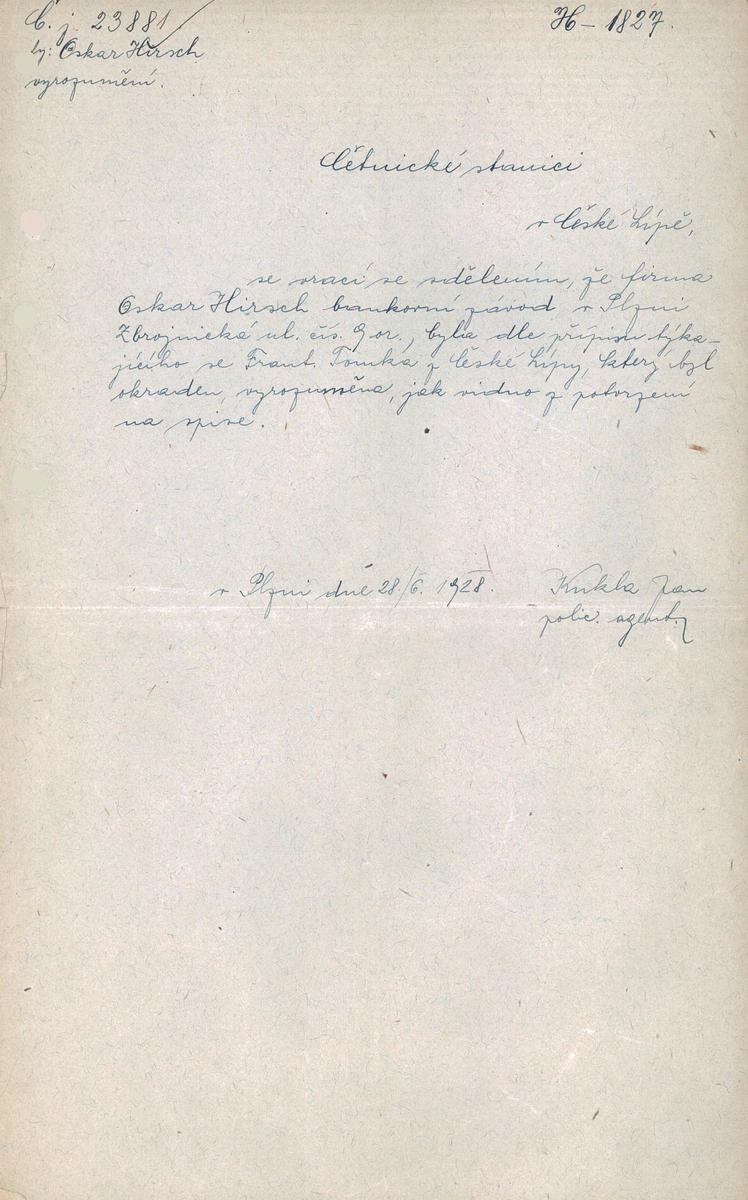 Č. j. 23881 H - 1827.
Oskar Hirsch
vyrozumění.
Četnické stanici
v České Lípě,
se vrací se sdělením, že firma
Oskar Hirsch bankovní závod v Plzni
Zbrojnická ul. čís. 9 or., byla dle přípisu týka-
jícího se Frant. Tomka z České Lípy, který byl
okraden, vyrozuměna, jak vidno z potvrzení
na spise.
v Plzni dne 28/6. 1928. Kukla Jan
polic. agent.